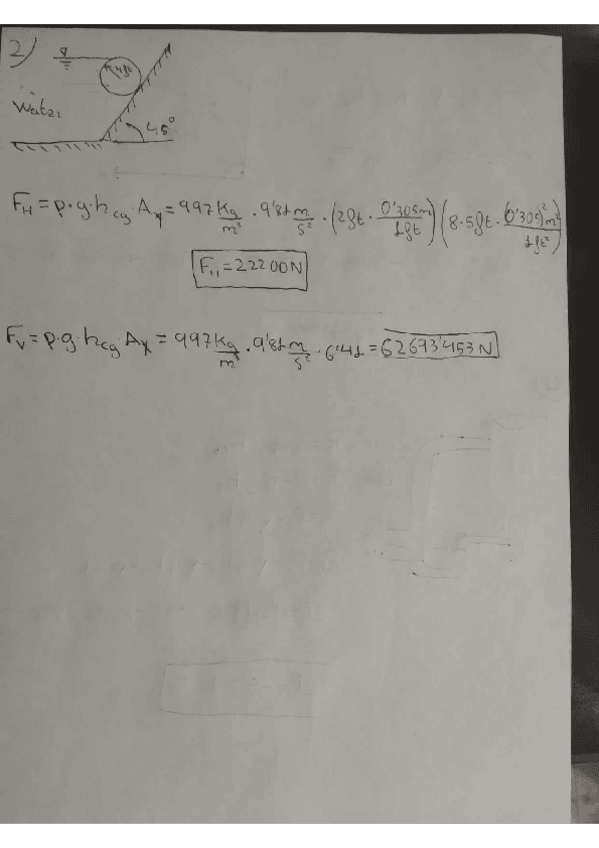 2)
4ft
Water
45°
F_H = ρ·g·h_cg·A_x = 997 Kg/m³ · 9'81 m/s² · (2ft · 0'305m/1ft) (8·5ft · (0'305)² m²/1ft²)
F_H = 22200N
F_V = ρ·g·h_cg·A_x = 997 Kg/m³ · 9'81 m/s² · 6'41 = 62673'453N